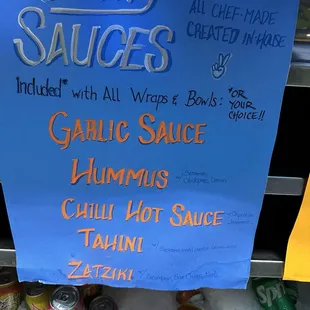 SAUCES
ALL CHEF-MADE
CREATED IN-HOUSE
Included* with All Wraps & Bowls:
*OR
YOUR
CHOICE!!
GARLIC SAUCE
HUMMUS
CHILLI HOT SAUCE
TAHINI
ZATZIKI